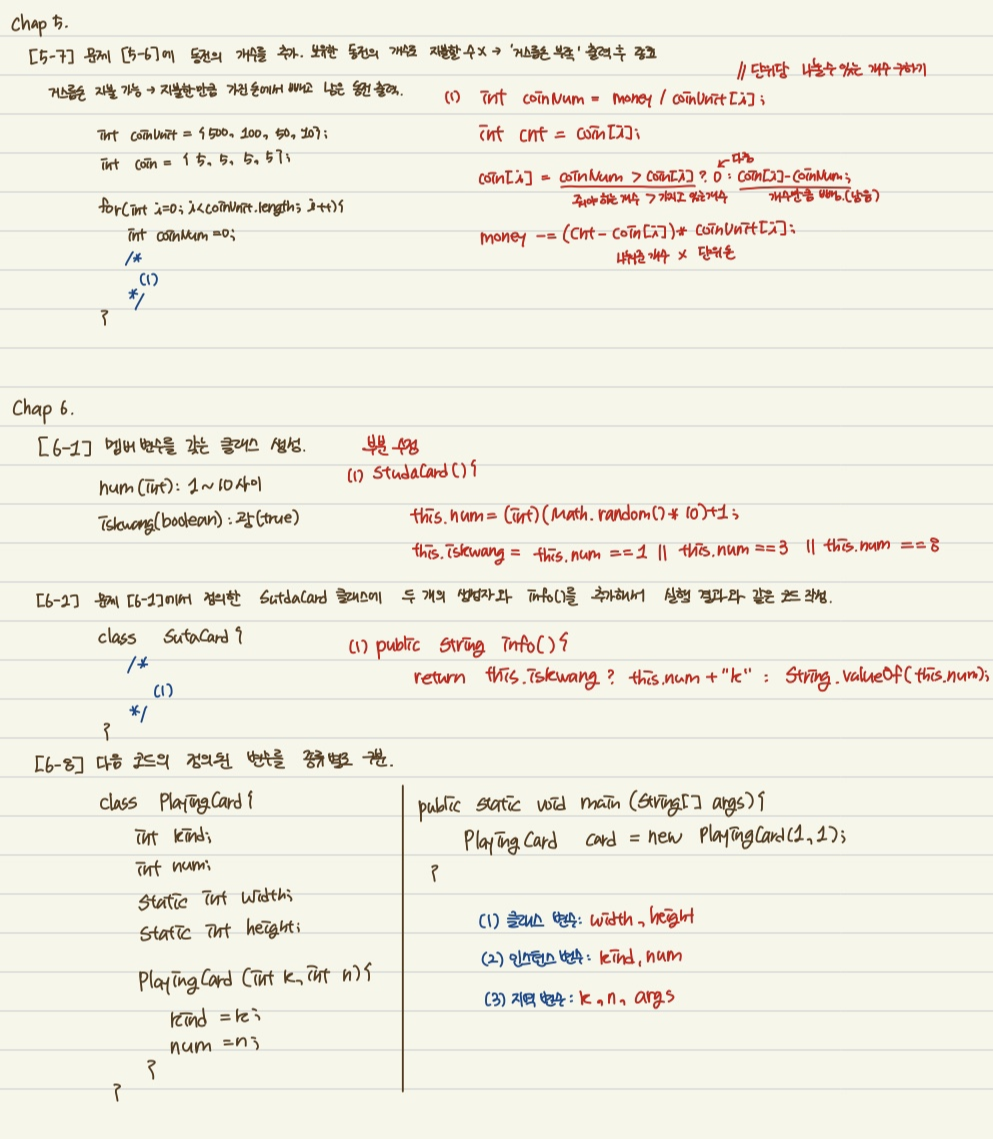 Chap 5.
[5-7] 문제 [5-6]에 동전의 개수를 추가. 보유한 동전의 개수로 지불할 수 X → '거스름돈 부족' 출력 후 종료
거스름돈 지불 가능 → 지불한 만큼 가진 돈에서 빼고 남은 동전 출력.
int coinUnit = {500, 100, 50, 10};
int coin = {5, 5, 5, 5};
for(int i=0; i<coinUnit.length; i++){
int coinNum =0;
/*
(1)
*/
}
// 단위당 나눌수 있는 개수 구하기
(1) int coinNum = money / coinUnit[i];
int cnt = coin[i];
↙다줌
coin[i] = coinNum > coin[i] ? 0 : coin[i]-coinNum;
줘야 하는 개수 > 가지고 있는 개수 개수만큼 빼줌.(남음)
money -= (cnt - coin[i])* coinUnit[i];
나눠준 개수 × 단위돈
Chap 6.
[6-1] 멤버 변수를 갖는 클래스 생성.
num(int): 1~10 사이
iskwang(boolean) : 광(true)
부분 수정
(1) StudaCard(){
this.num = (int)(Math.random() * 10)+1;
this.iskwang = this.num == 1 || this.num == 3 || this.num == 8
[6-2] 문제 [6-1]에서 정의한 SutdaCard 클래스에 두 개의 생성자와 info()를 추가해서 실행 결과와 같은 코드 작성.
class SutaCard {
/*
(1)
*/
}
(1) public String info(){
return this.iskwang ? this.num + "k" : String.valueOf(this.num);
[6-8] 다음 코드의 정의된 변수를 종류별로 구분.
class PlayingCard {
int kind;
int num;
static int width;
static int height;
PlayingCard (int k, int n){
kind = k;
num = n;
}
}
public static void main (String[] args){
PlayingCard card = new PlayingCard(1,1);
}
(1) 클래스 변수: width, height
(2) 인스턴스 변수: kind, num
(3) 지역 변수: k, n, args